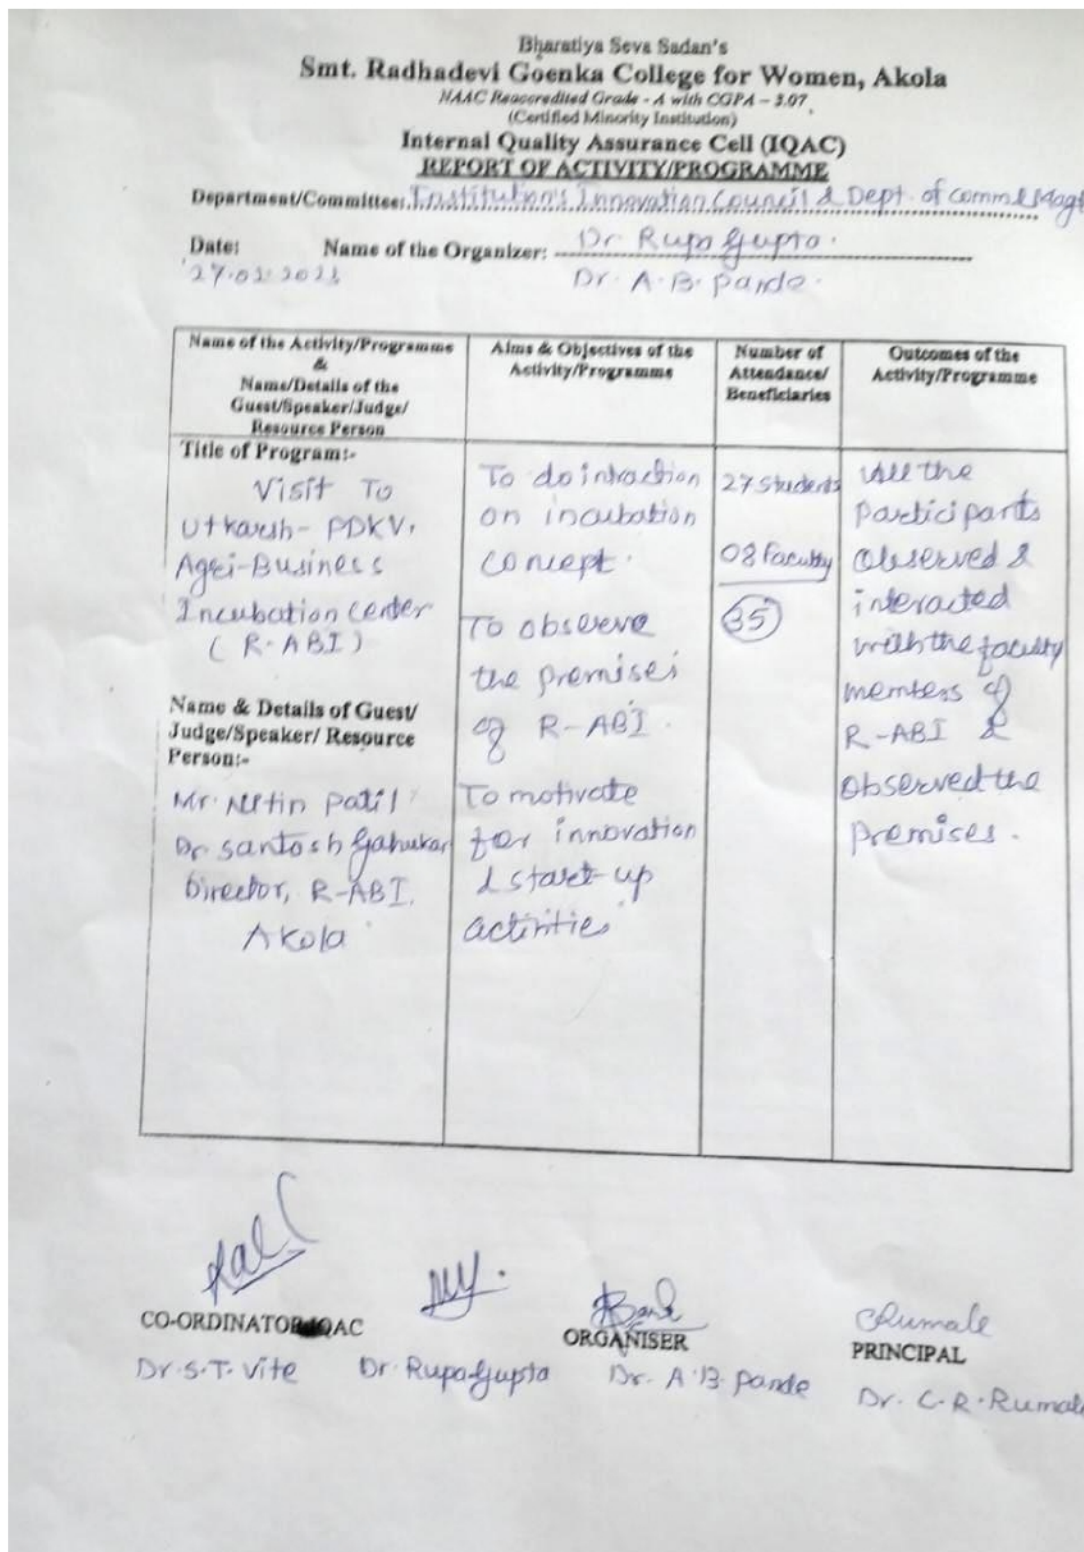 Bharatiya Seva Sadan's
Smt. Radhadevi Goenka College for Women, Akola
NAAC Reaccredited Grade - A with CGPA – 3.07
(Certified Minority Institution)
Internal Quality Assurance Cell (IQAC)
REPORT OF ACTIVITY/PROGRAMME
Department/Committee: Institution's Innovation Council & Dept. of comm & Magt
Date: Name of the Organizer: Dr Rupa Gupta.
Dr. A. B. Pande.
Name of the Activity/Programme
&
Name/Details of the
Guest/Speaker/Judge/
Resource Person
Aims & Objectives of the
Activity/Programme
Number of
Attendance/
Beneficiaries
Outcomes of the
Activity/Programme
Title of Program:-
Visit To
Utkarsh- PDKV,
Agri-Business
Incubation Center
(R-ABI)
Name & Details of Guest/
Judge/Speaker/ Resource
Person:-
Mr. Nitin Patil
Dr. Santosh Gahukar
Director, R-ABI.
Akola
To do intraction
on incubation
concept.
To observe
the premises
of R-ABI.
To motivate
for innovation
& start-up
activities
27 students
08 Faculty
35
All the
Participants
Observed &
interacted
with the faculty
members of
R-ABI &
Observed the
premises.
CO-ORDINATOR IQAC
Dr. S. T. Vite
Dr. Rupa Gupta
ORGANISER
Dr. A. B. Pande
CRumale
PRINCIPAL
Dr. C. R. Rumale